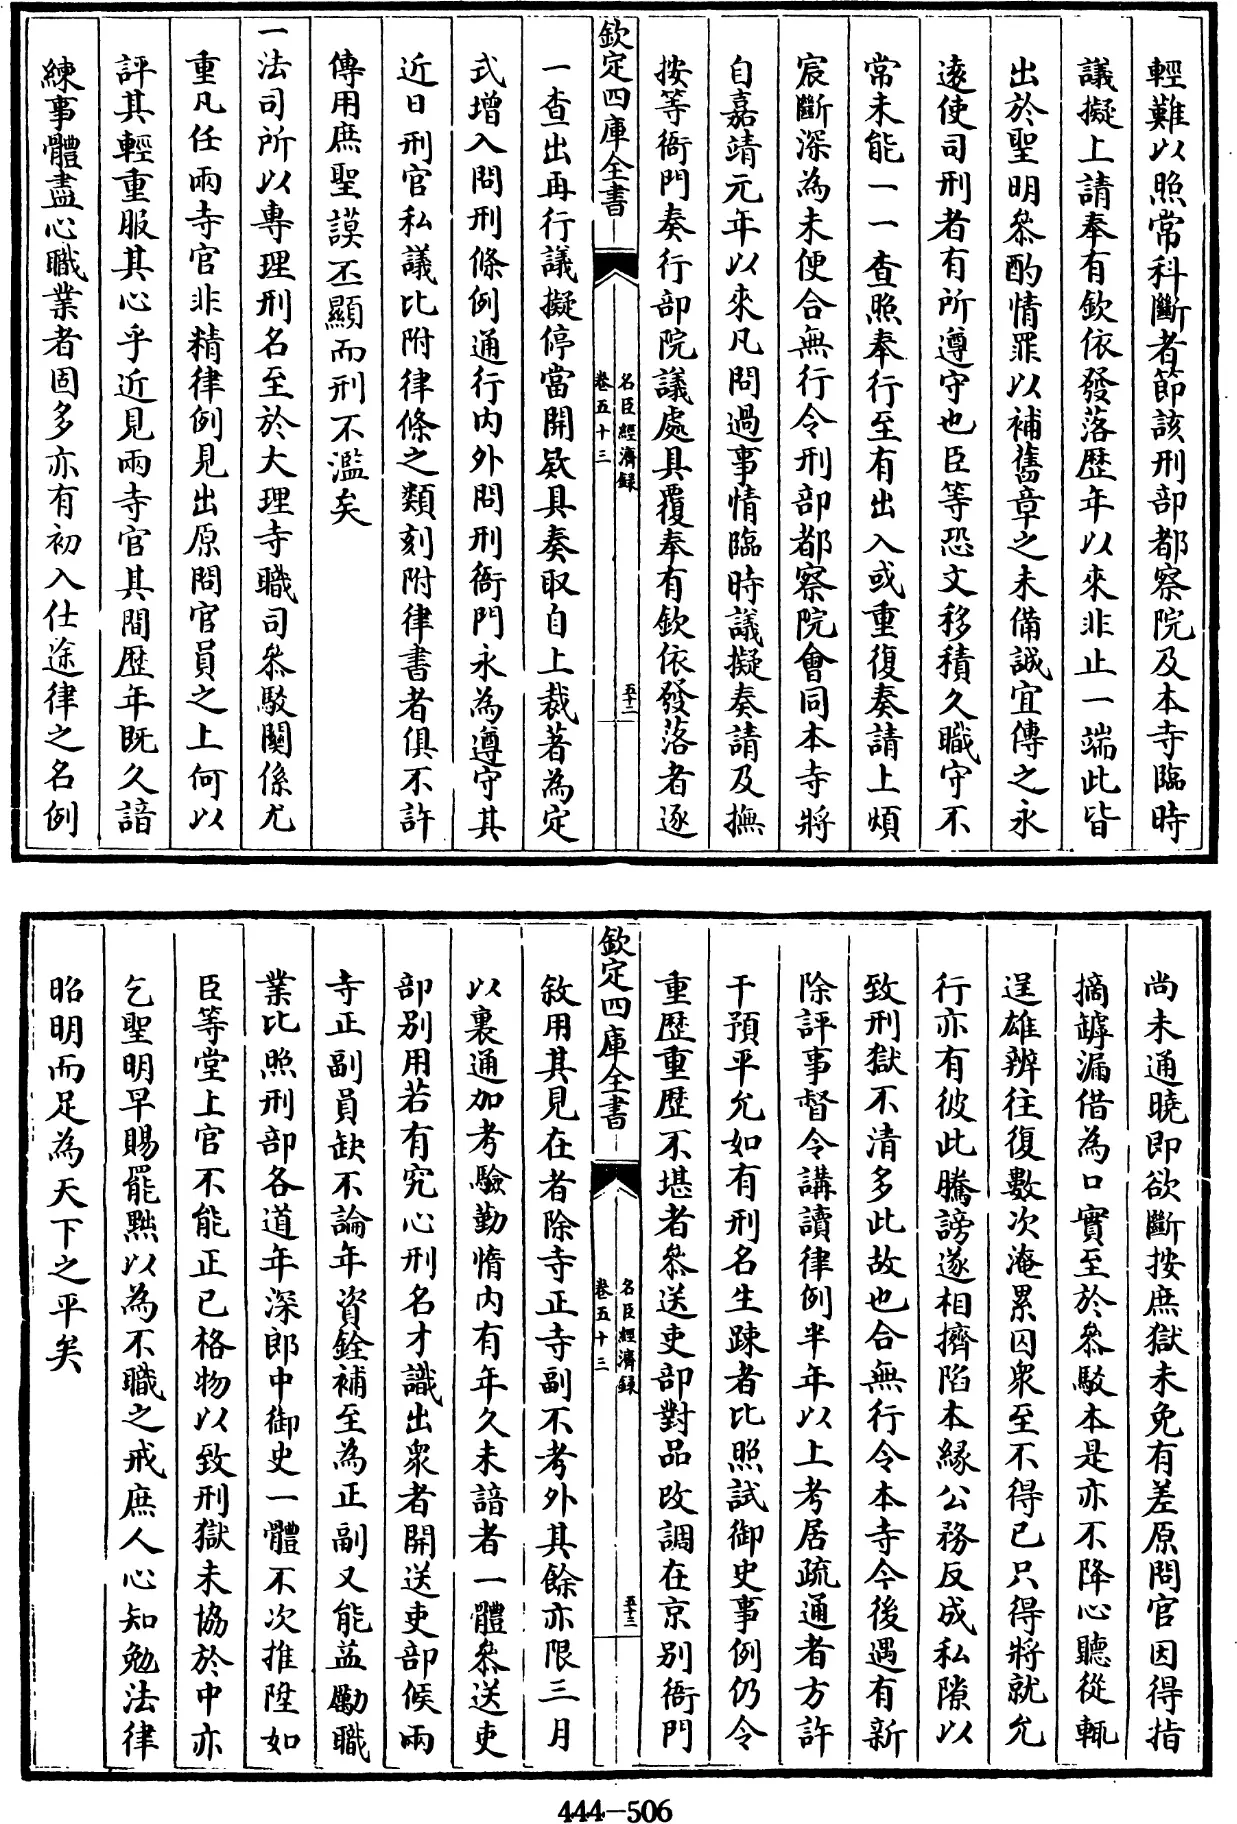 輕難以照常科斷者節該刑部都察院及本寺臨時
議擬上請奉有欽依發落歴年以來非止一端此皆
出於聖明叅酌情罪以補舊章之未備誠宜傳之永
逺使司刑者有所遵守也臣等恐文移積久職守不
常未能一一查照奉行至有出入或重復奏請上煩
宸斷深為未便合無行令刑部都察院會同本寺將
自嘉靖元年以來凡問過事情臨時議擬奏請及撫
按等衙門奏行部院議處具覆奉有欽依發落者逐
欽定四庫全書
名臣經濟録
卷五十三
五十二
一查出再行議擬停當開欵具奏取自上裁著為定
式增入問刑條例通行内外問刑衙門永為遵守其
近日刑官私議比附律條之類刻附律書者俱不許
傳用庶聖謨丕顯而刑不濫矣
一法司所以專理刑名至於大理寺職司叅駁關係尤
重凡任兩寺官非精律例見出原問官員之上何以
評其輕重服其心乎近見兩寺官其間歴年既久諳
練事體盡心職業者固多亦有初入仕途律之名例
尚未通曉即欲斷按庶獄未免有差原問官因得指
摘罅漏借為口實至於叅駁本是亦不降心聽從輒
逞雄辨往復數次淹累囚衆至不得已只得將就允
行亦有彼此騰謗遂相擠陷本縁公務反成私隙以
致刑獄不清多此故也合無行令本寺今後遇有新
除評事督令講讀律例半年以上考居疏通者方許
干預平允如有刑名生踈者比照試御史事例仍令
重歴重歴不堪者叅送吏部對品改調在京别衙門
欽定四庫全書
名臣經濟録
卷五十三
五十三
敘用其見在者除寺正寺副不考外其餘亦限三月
以裏通加考驗勤惰内有年久未諳者一體叅送吏
部别用若有究心刑名才識出衆者開送吏部候兩
寺正副員缺不論年資銓補至為正副又能益勵職
業比照刑部各道年深郎中御史一體不次推陞如
臣等堂上官不能正已格物以致刑獄未協於中亦
乞聖明早賜罷黜以為不職之戒庶人心知勉法律
昭明而足為天下之平矣
444-506